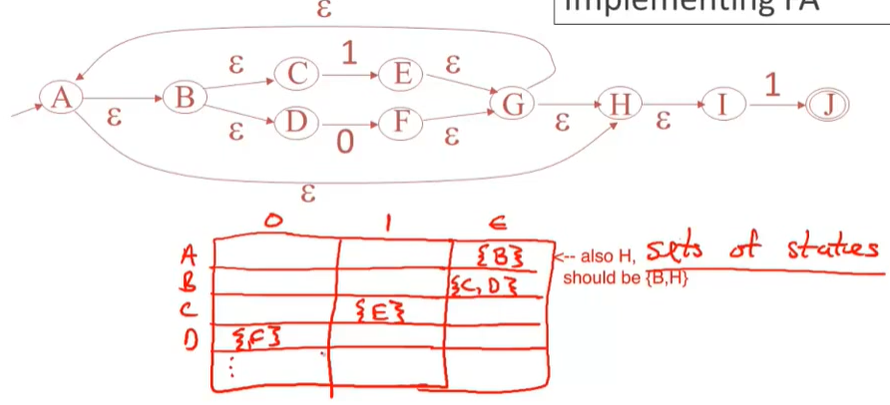 Implementing FA
ε
1
ε C E ε
A B G H I 1 J
ε ε D F ε ε ε
0
ε
0 1 ε
A {B} <-- also H, sets of states
should be {B,H}
B {C, D}
C {E}
D {F}
⋮